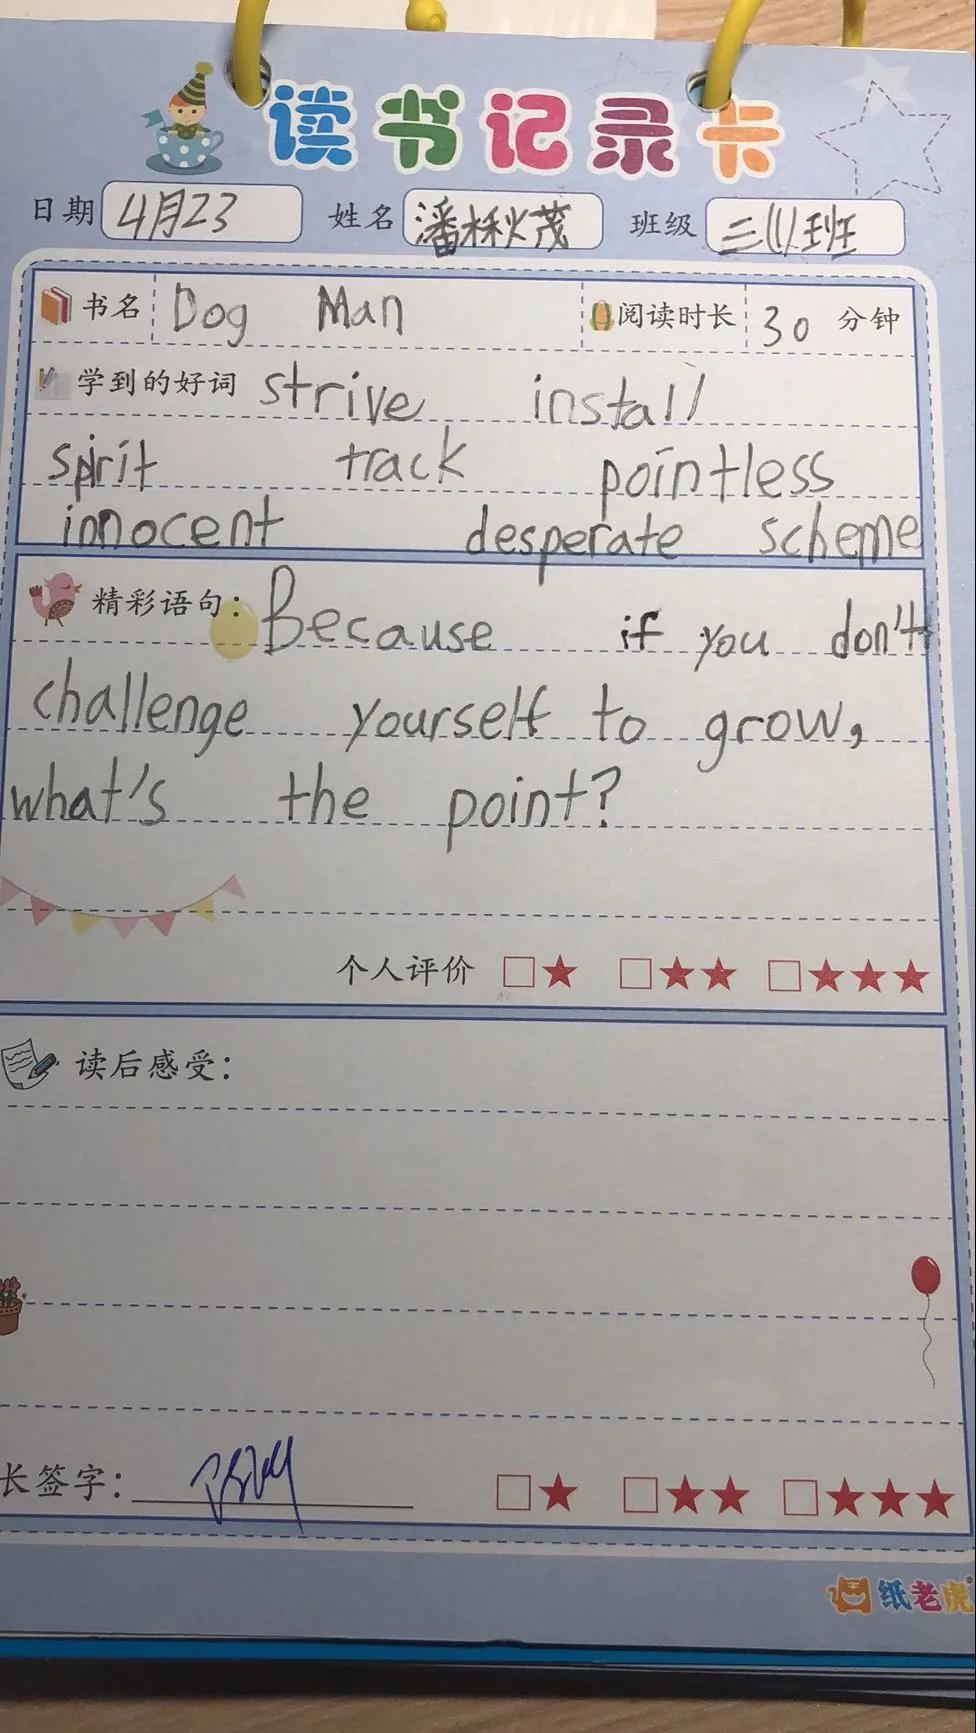 读书记录卡
日期 4月23 姓名 潘秝火茂 班级 三(1)班
书名 Dog Man 阅读时长 30 分钟
学到的好词 strive install
spirit track pointless
innocent desperate scheme
精彩语句: Because if you don't
challenge yourself to grow,
what's the point?
个人评价 □★ □★★ □★★★
读后感受:
长签字: □★ □★★ □★★★
纸老虎